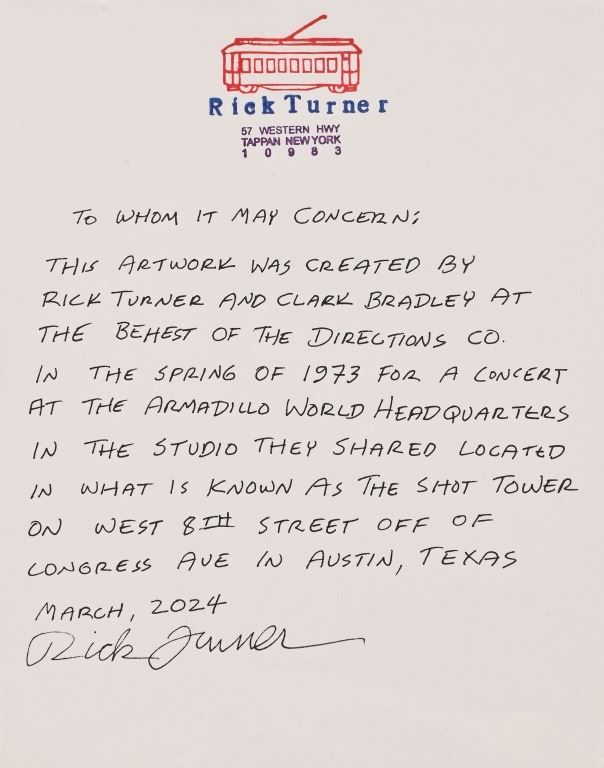 Rick Turner
57 WESTERN HWY
TAPPAN NEW YORK
1 0 9 8 3
TO WHOM IT MAY CONCERN;
THIS ARTWORK WAS CREATED BY
RICK TURNER AND CLARK BRADLEY AT
THE BEHEST OF THE DIRECTIONS CO.
IN THE SPRING OF 1973 FOR A CONCERT
AT THE ARMADILLO WORLD HEADQUARTERS
IN THE STUDIO THEY SHARED LOCATED
IN WHAT IS KNOWN AS THE SHOT TOWER
ON WEST 8TH STREET OFF OF
CONGRESS AVE IN AUSTIN, TEXAS
MARCH, 2024
Rick Turner